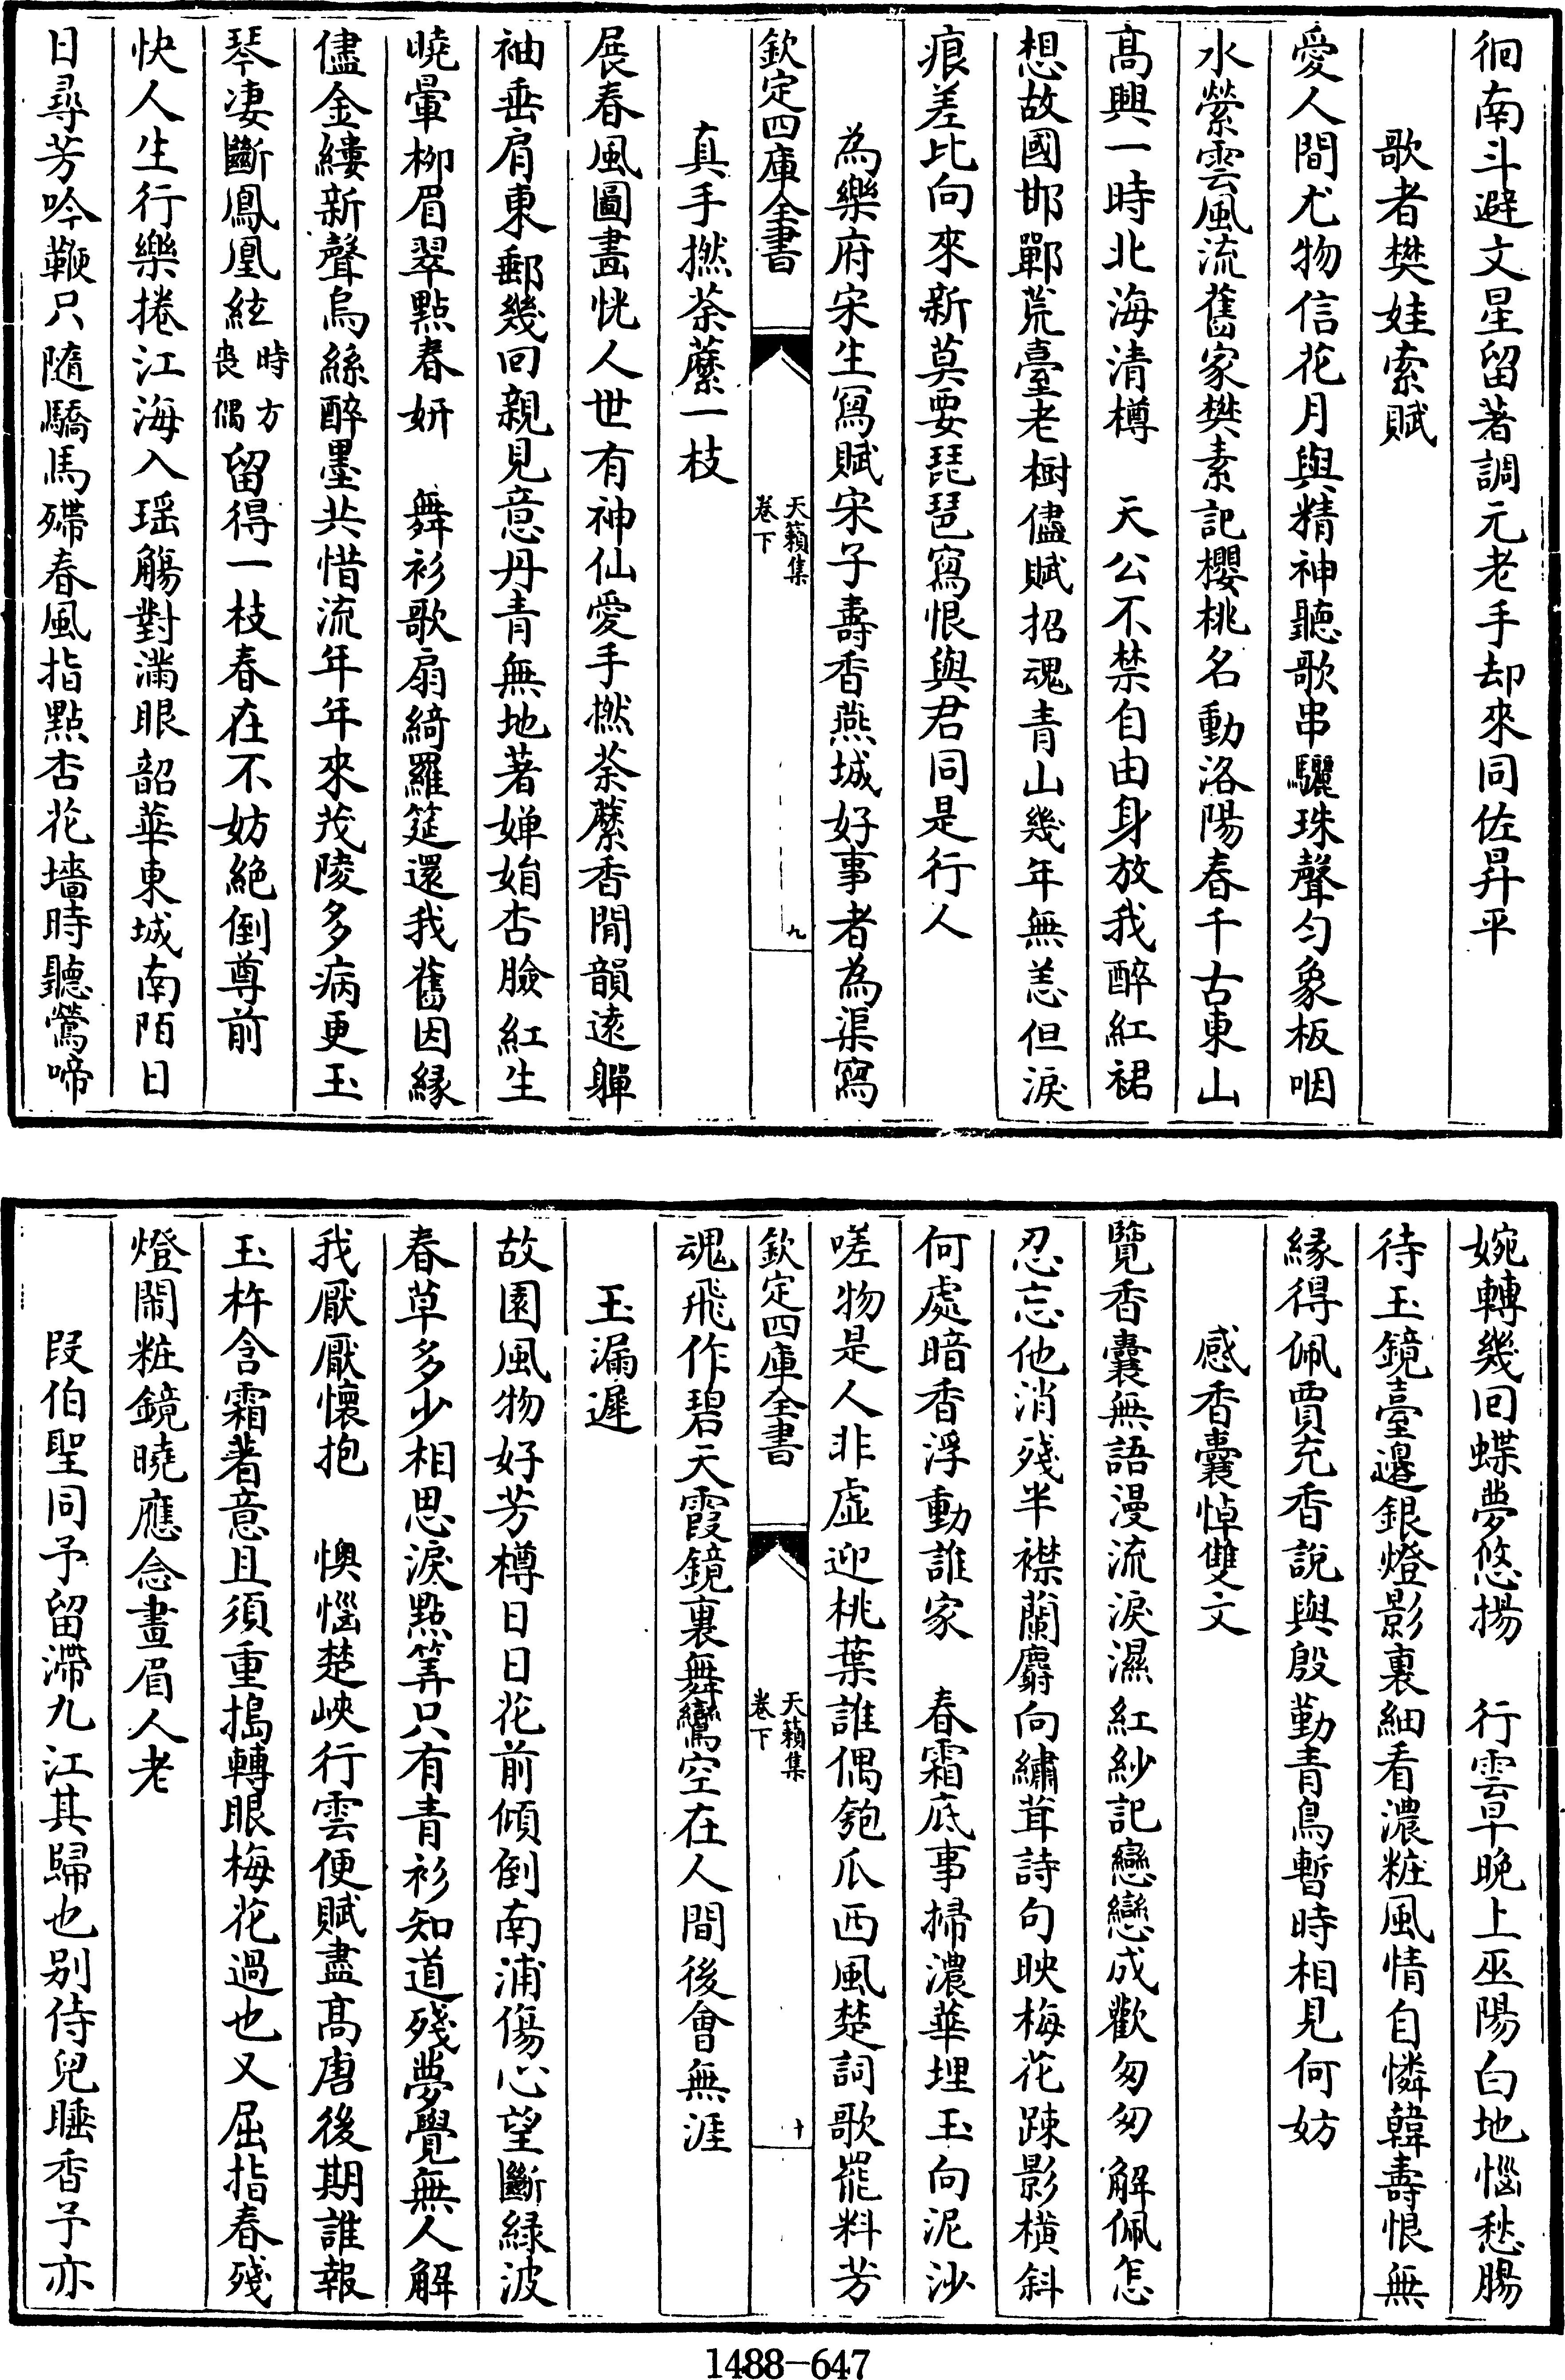 徊南斗避文星留著調元老手却來同佐昇平
歌者樊娃索賦
愛人間尤物信花月與精神聽歌串驪珠聲勻象板咽
水縈雲風流舊家樊素記櫻桃名動洛陽春千古東山
高興一時北海清樽　天公不禁自由身放我醉紅裙
想故國邯鄲荒臺老樹儘賦招魂青山幾年無恙但淚
痕差比向來新莫要琵琶寫恨與君同是行人
為樂府宋生寫賦宋子壽香燕城好事者為渠寫
欽定四庫全書
天籟集
卷下
九
真手撚荼蘼一枝
展春風圖畫恍人世有神仙愛手撚荼蘼香閒韻遠軃
袖垂肩東郵幾回親見意丹青無地著嬋娟杏臉紅生
曉暈柳眉翠點春妍　舞衫歌扇綺羅筵還我舊因緣
儘金縷新聲烏絲醉墨共惜流年年來茂陵多病更玉
琴凄斷鳳凰絃時方喪偶留得一枝春在不妨絕倒尊前
快人生行樂捲江海入瑶觴對滿眼韶華東城南陌日
日尋芳吟鞭只隨驕馬殢春風指點杏花墻時聽鶯啼
婉轉幾回蝶夢悠揚　行雲早晚上巫陽白地惱愁腸
待玉鏡臺邊銀燈影裏細看濃粧風情自憐韓壽恨無
緣得佩賈充香說與殷勤青鳥暫時相見何妨
感香囊悼雙文
覽香囊無語漫流淚濕紅紗記戀戀成歡匆匆解佩怎
忍忘他消殘半襟蘭麝向繡茸詩句映梅花踈影橫斜
何處暗香浮動誰家　春霜底事掃濃華埋玉向泥沙
嗟物是人非虛迎桃葉誰偶匏瓜西風楚詞歌罷料芳
欽定四庫全書
天籟集
卷下
十
魂飛作碧天霞鏡裏舞鸞空在人間後會無涯
玉漏遲
故園風物好芳樽日日花前傾倒南浦傷心望斷綠波
春草多少相思淚點筭只有青衫知道殘夢覺無人解
我厭厭懷抱　懊惱楚峽行雲便賦盡高唐後期誰報
玉杵含霜著意且須重搗轉眼梅花過也又屈指春殘
燈閙粧鏡曉應念畫眉人老
段伯堅同予留滯九江其歸也別侍兒睡香予亦
1488-647